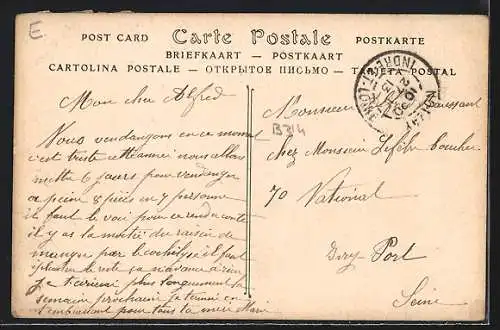 E
POST CARD Carte Postale POSTKARTE
BRIEFKAART — POSTKAART
CARTOLINA POSTALE — ОТКРЫТОЕ ПИСЬМО — TARJETA POSTAL
INDRE-ET-LOIRE
Mon cher Alfred
Nous vendangons en ce moment
c'est triste cette année nous allons
mettre 6 jours pour vendanger
a peine 8 pièces en 7 personne
il faut le voir pour ce rendre conte
il y as la moitié du raisin de
manger par la il faut
le reste sa n'avance a rien
je t'écrirai plus longuement la
semaine prochaine je termine en
t'embrassant pour tous ta mère Marie
B314
Monsieur
chez Monsieur Lefèbre boucher
70 National
Ivry-Port
Seine